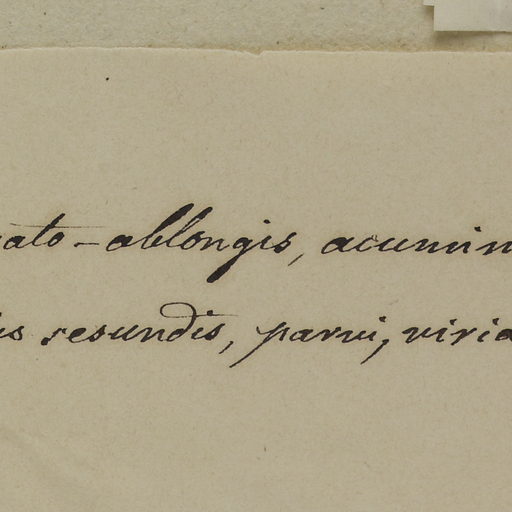 ato-oblongis, acumin
is secundis, parvi, virid